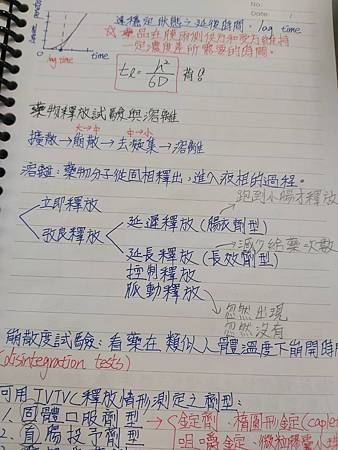 No:
Date:
達穩定狀態之延後時間. lag time
lag time
time
一定濃度差所需要的時間.
tL = h²/6D 背!!
藥物釋放試驗與溶離
大→中 中→小
擴散→崩散→去凝集→溶離
溶離:藥物分子從固相釋出,進入液相的過程.
跑到小腸才釋放
立即釋放
改良釋放
延遲釋放(腸衣劑型)
減少給藥次數
延長釋放(長效劑型)
控制釋放
脈動釋放
忽然出現
忽然沒有
崩散度試驗:看藥在類似人體溫度下崩開時
(disintegration tests)
可用IVIVC釋放情形測定之劑型:
1. 固體口服劑型→錠劑.橢圓形錠(caplet
2. 直腸投予劑型
咀嚼錠.微粒膠囊小球